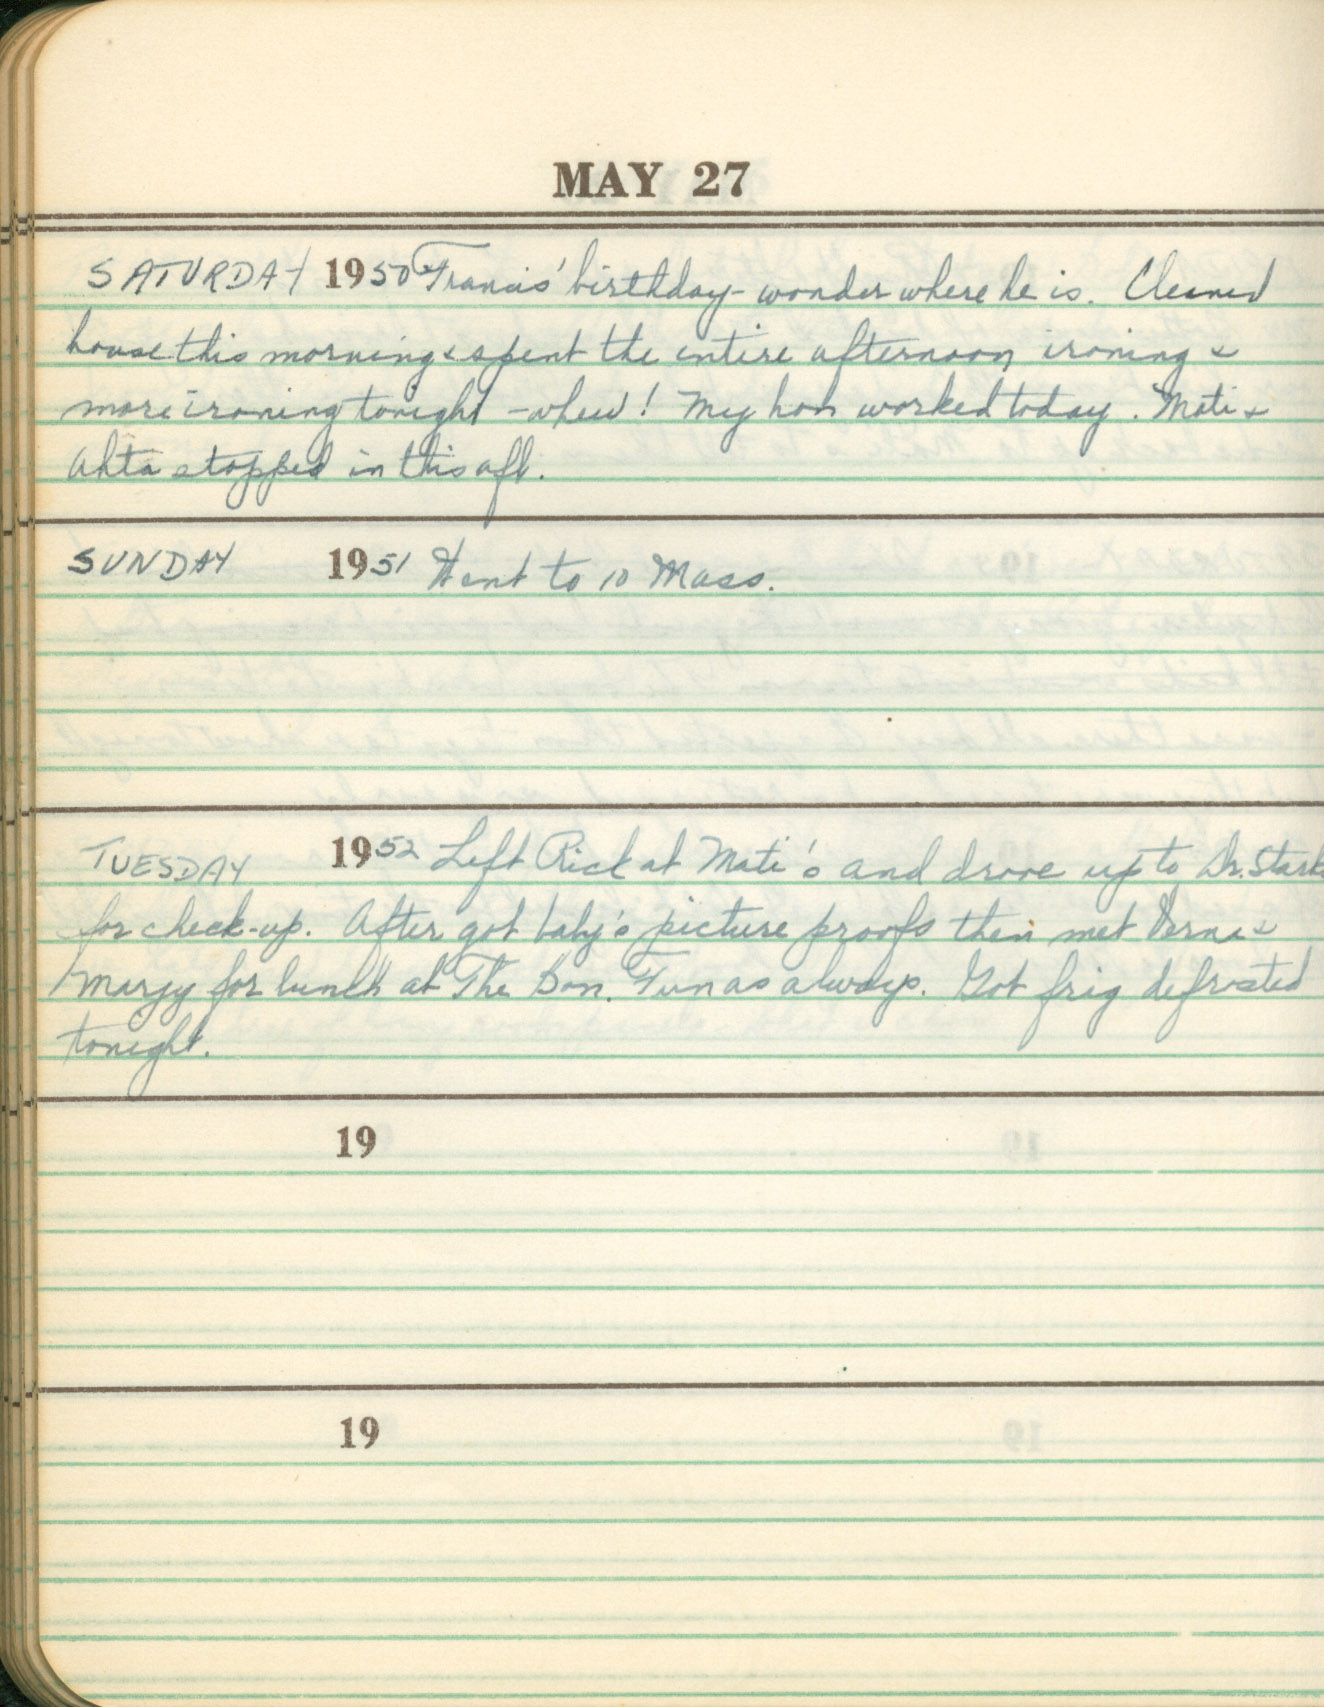 MAY 27
SATURDAY 1950 Francis' birthday - wonder where he is. Cleaned
house this morning & spent the entire afternoon ironing &
more ironing tonight - whew! My hon worked today. Mati &
Ahta stopped in this aft.
SUNDAY 1951 Went to 10 Mass.
TUESDAY 1952 Left Rick at Mati's and drove up to Dr. Starks
for check-up. After got baby's picture proofs then met Verna &
Margy for lunch at The Bon. Fun as always. Got frig defrosted
tonight.
19
19